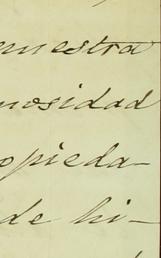 emuestra
nosidad
opieda-
de hi-